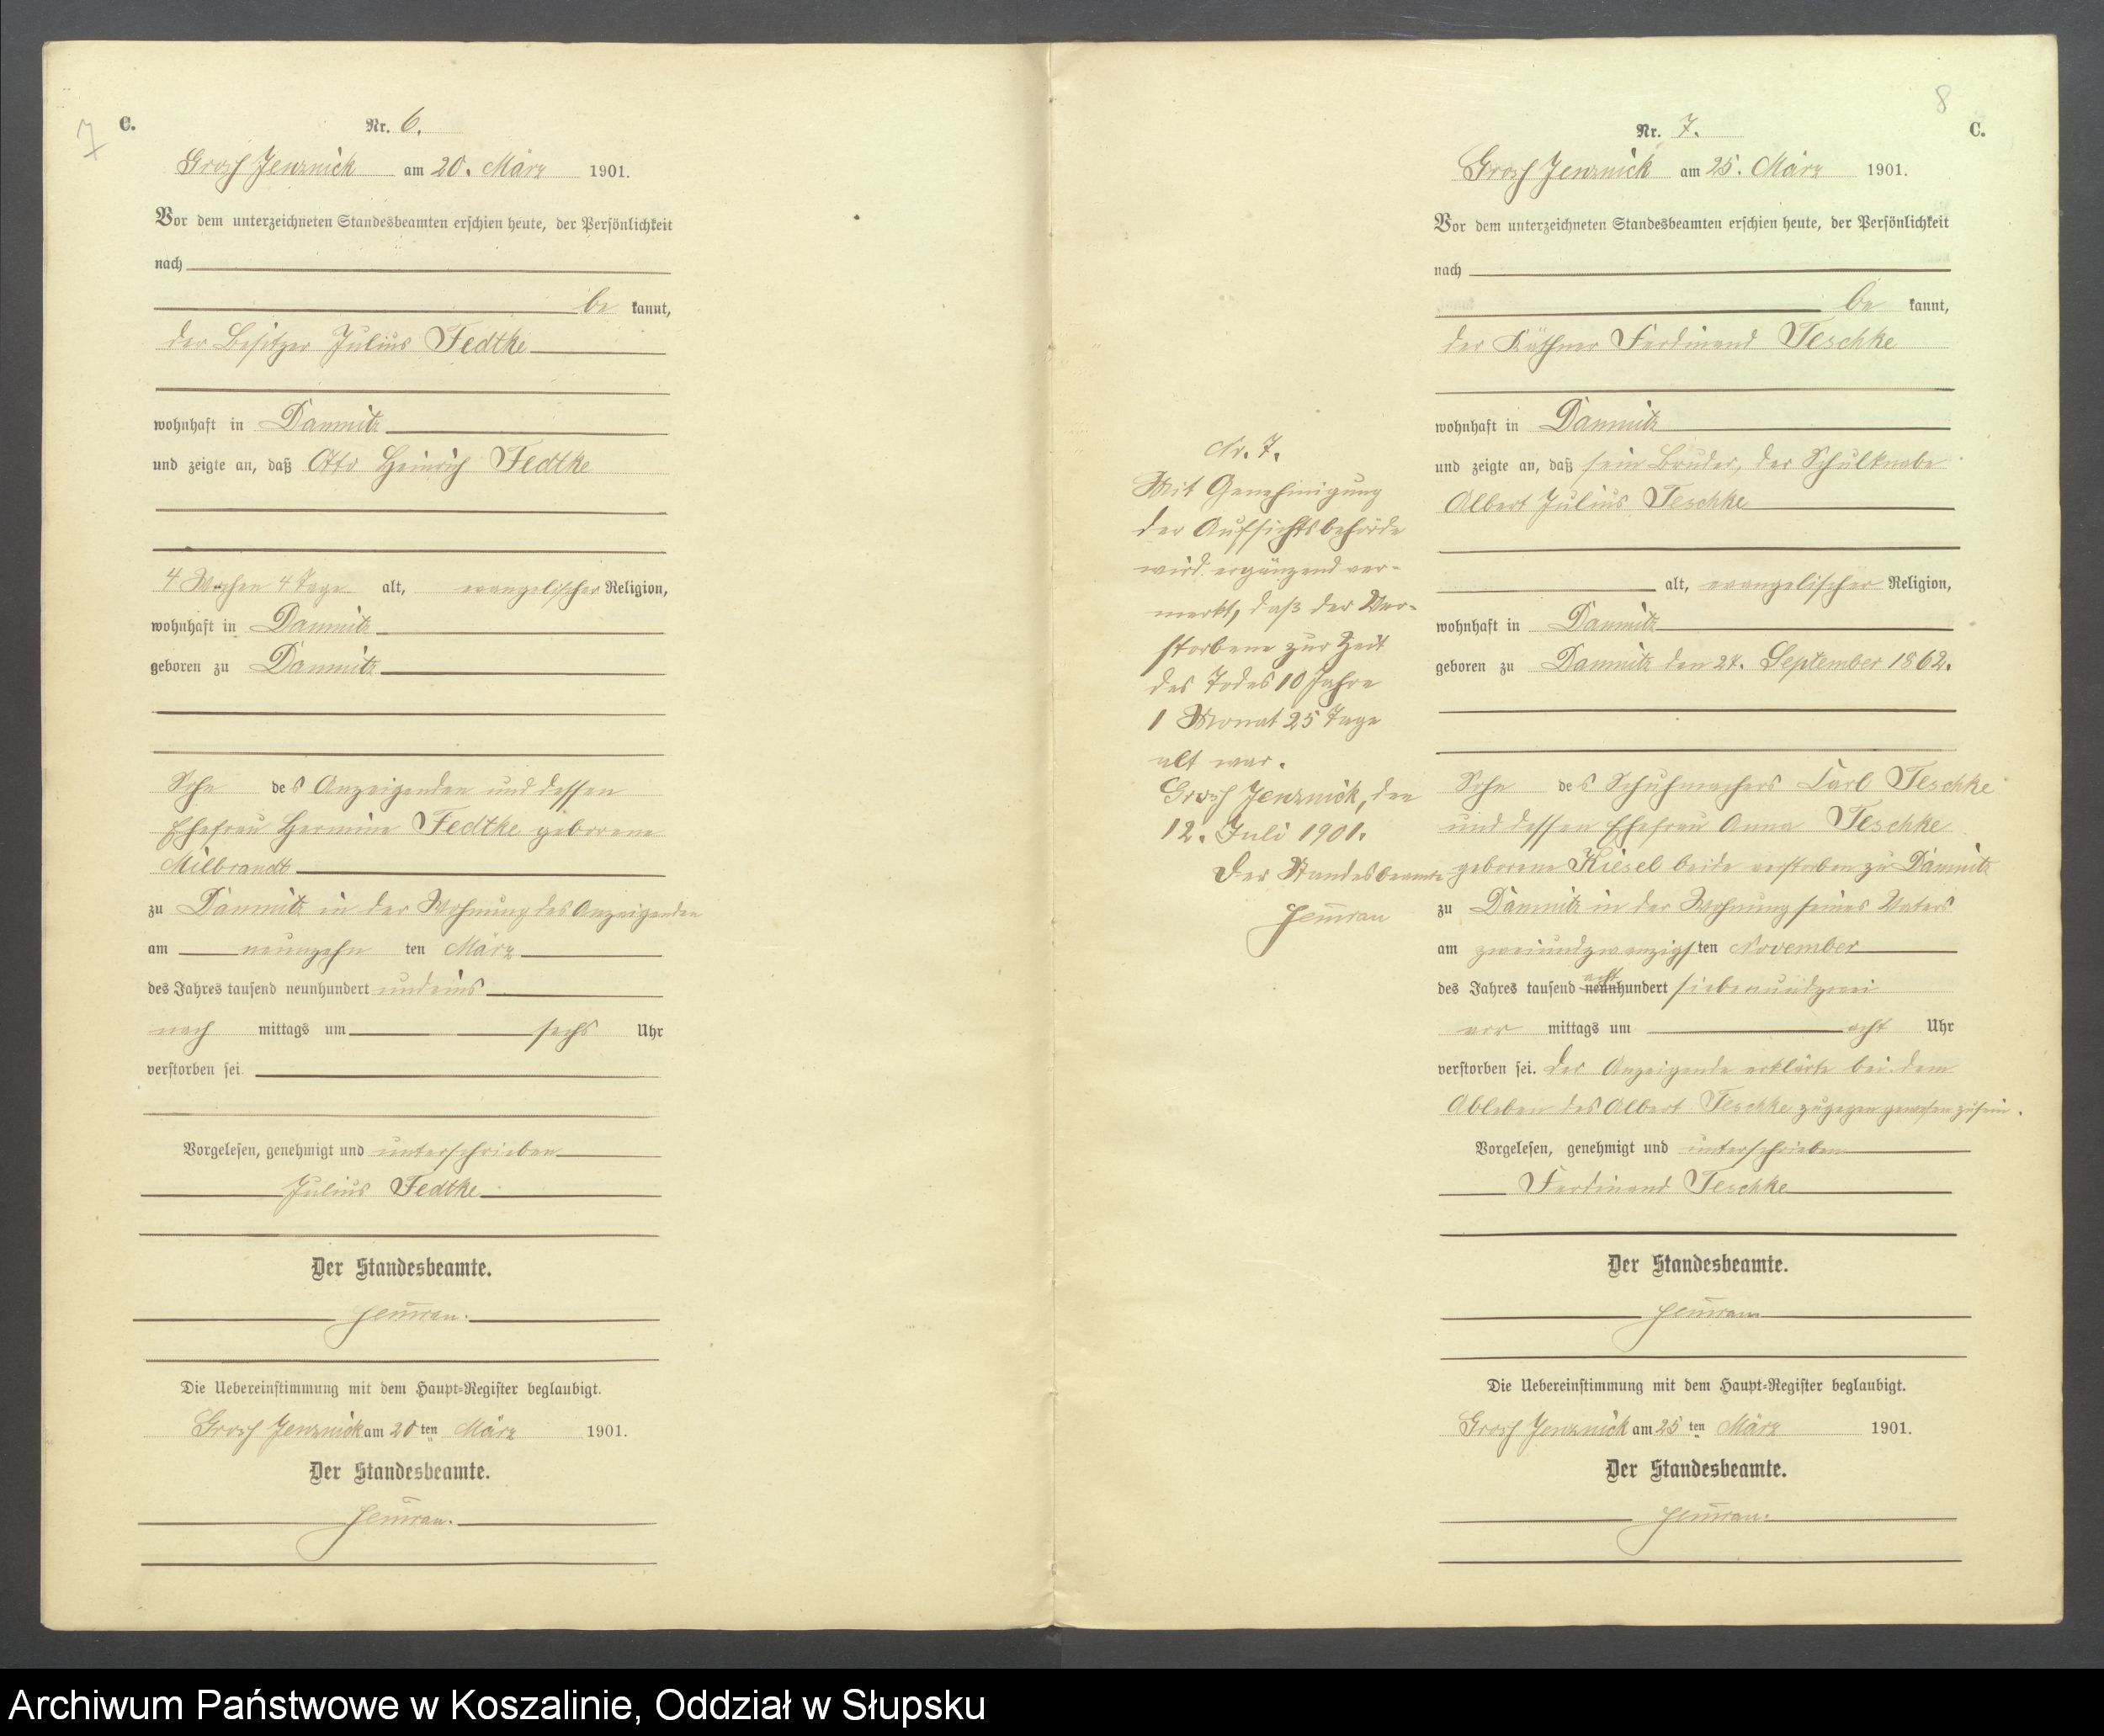 7
C.
Nr. 6.
Grosz Jenznick am 20. März 1901.
Vor dem unterzeichneten Standesbeamten erschien heute, der Persönlichkeit
nach
be kannt,
der Besitzer Julius Fedtke
wohnhaft in Damnitz
und zeigte an, daß Otto Heinrich Fedtke
4 Wochen 4 Tage alt, evangelischer Religion,
wohnhaft in Damnitz
geboren zu Damnitz
Sohn des Anzeigenden und dessen
Ehefrau Hermine Fedtke geborene
Milbrandt
zu Damnitz in der Wohnung des Anzeigenden
am neunzehn ten März
des Jahres tausend neunhundert undeins
nach mittags um sechs Uhr
verstorben sei
Vorgelesen, genehmigt und unterschrieben
Julius Fedtke
Der Standesbeamte.
Die Uebereinstimmung mit dem Haupt-Register beglaubigt.
Grosz Jenznick am 20 ten März 1901.
Der Standesbeamte.
Nr. 7.
Mit Genehmigung
der Aufsichtsbehörde
wird ergänzend ver-
merkt, daß der Ver-
storbene zur Zeit
des Todes 10 Jahre
1 Monat 25 Tage
alt war.
Grosz Jenznick, den
12. Juli 1901.
Der Standesbeamte
8
Nr. 7.
C.
Grosz Jenznick am 25. März 1901.
Vor dem unterzeichneten Standesbeamten erschien heute, der Persönlichkeit
nach
be kannt,
der Käthner Ferdinand Teschke
wohnhaft in Damnitz
und zeigte an, daß sein Bruder, der Schulknabe
Albert Julius Teschke
alt, evangelischer Religion,
wohnhaft in Damnitz
geboren zu Damnitz den 27. September 1862.
Sohn des Schuhmachers Carl Teschke
und dessen Ehefrau Anna Teschke
geborene Kiesel beide verstorben zu Damnitz
zu Damnitz in der Wohnung seines Vaters
am zweiundzwanzigsten November
acht
des Jahres tausend neunhundert siebenundzwei
vor mittags um acht Uhr
verstorben sei. Der Anzeigende erklärte bei dem
Ableben des Albert Teschke zugegen gewesen zu sein.
Vorgelesen, genehmigt und unterschrieben
Ferdinand Teschke
Der Standesbeamte.
Die Uebereinstimmung mit dem Haupt-Register beglaubigt.
Grosz Jenznick am 25 ten März 1901.
Der Standesbeamte.
Archiwum Państwowe w Koszalinie, Oddział w Słupsku